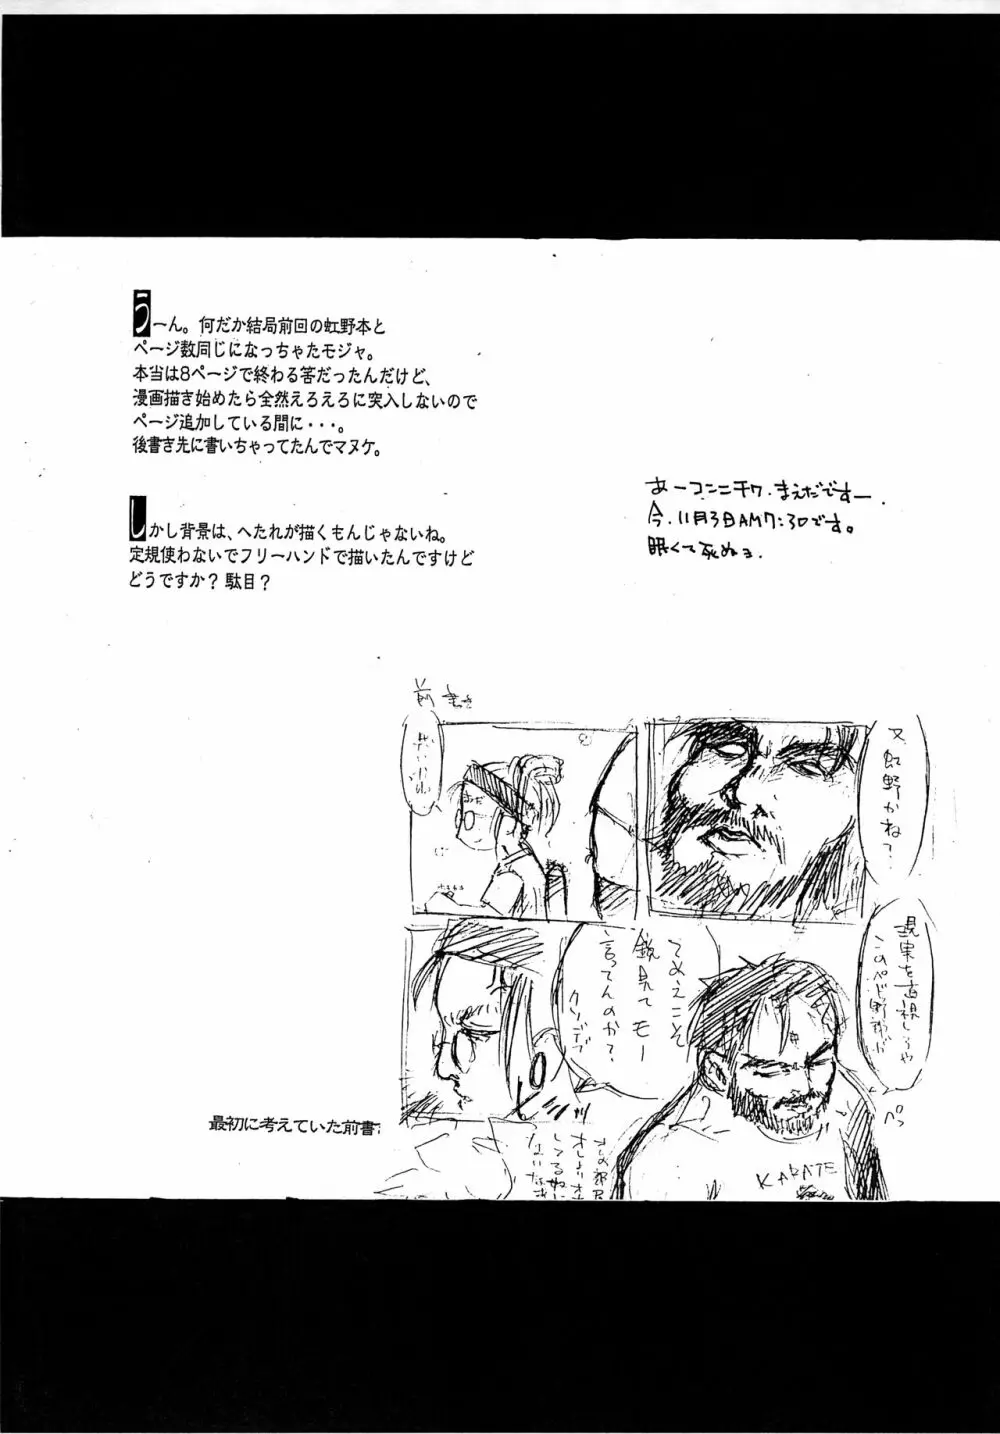 うーん。何だか結局前回の虹野本と
ページ数同じになっちゃたモジャ。
本当は8ページで終わる答だったんだけど、
漫画描き始めたら全然えろえろに突入しないので
ページ追加している間に・・・。
後書き先に書いちゃってたんでマヌケ。
しかし背景は、へたれが描くもんじゃないね。
定規使わないでフリーハンドで描いたんですけど
どうですか？駄目？
あーコンニチワ、まえだですー。
今、11月3日AM7:30です。
眠くて死ぬョ。
前書き
又、虹野かね？
現実を直視しろや
このペド野郎が
ペッ
てめえこそ
鏡見てモー
言ってんのか？
クソデブ
KARATE
最初に考えていた前書